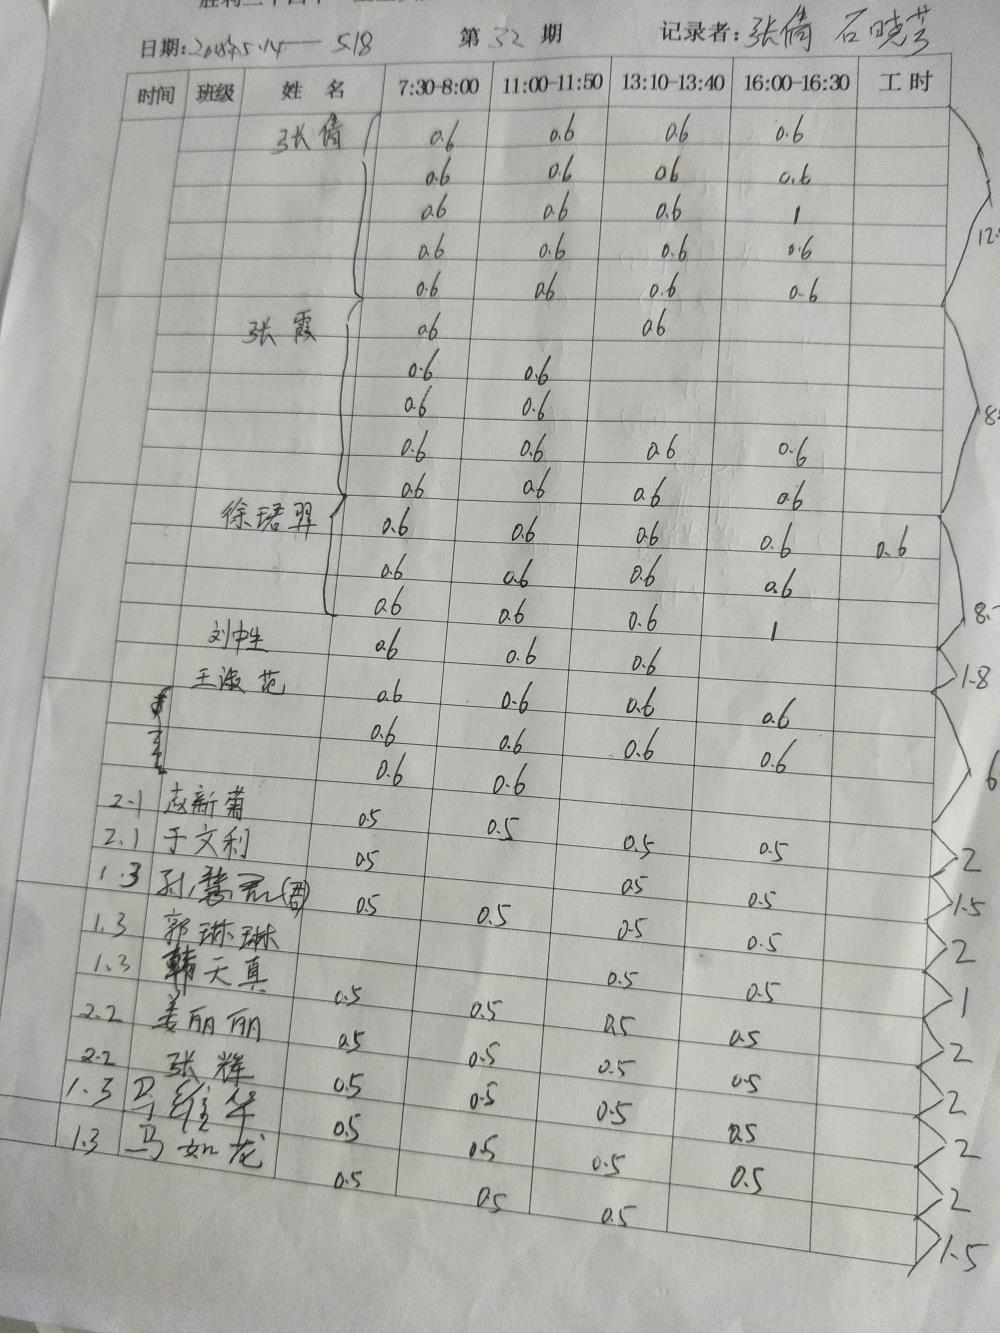 日期: 5.14—5.18 第32期 记录者:张倩 石晓芳
时间 班级 姓名 7:30-8:00 11:00-11:50 13:10-13:40 16:00-16:30 工时
张倩 0.6 0.6 0.6 0.6
0.6 0.6 0.6 0.6
0.6 0.6 0.6 1
0.6 0.6 0.6 0.6
0.6 0.6 0.6 0.6
张霞 0.6 0.6
0.6 0.6
0.6 0.6
0.6 0.6 0.6 0.6
0.6 0.6 0.6 0.6
徐珺羿 0.6 0.6 0.6 0.6 0.6
0.6 0.6 0.6 0.6
0.6 0.6 0.6 1
刘中生 0.6 0.6 0.6 1.8
王淑范 0.6 0.6 0.6 0.6
0.6 0.6 0.6 0.6
0.6 0.6
2.1 赵新菊 0.5 0.5 0.5 0.5 2
2.1 于文利 0.5 0.5 0.5 1.5
1.3 孙慧君(君) 0.5 0.5 0.5 0.5 2
1.3 郭琳琳 0.5 0.5 1
1.3 韩天真 0.5 0.5 0.5 0.5 2
2.2 姜丽丽 0.5 0.5 0.5 0.5 2
2.2 张辉 0.5 0.5 0.5 0.5 2
1.3 马维华 0.5 0.5 0.5 0.5 2
1.3 马如龙 0.5 0.5 0.5 1.5